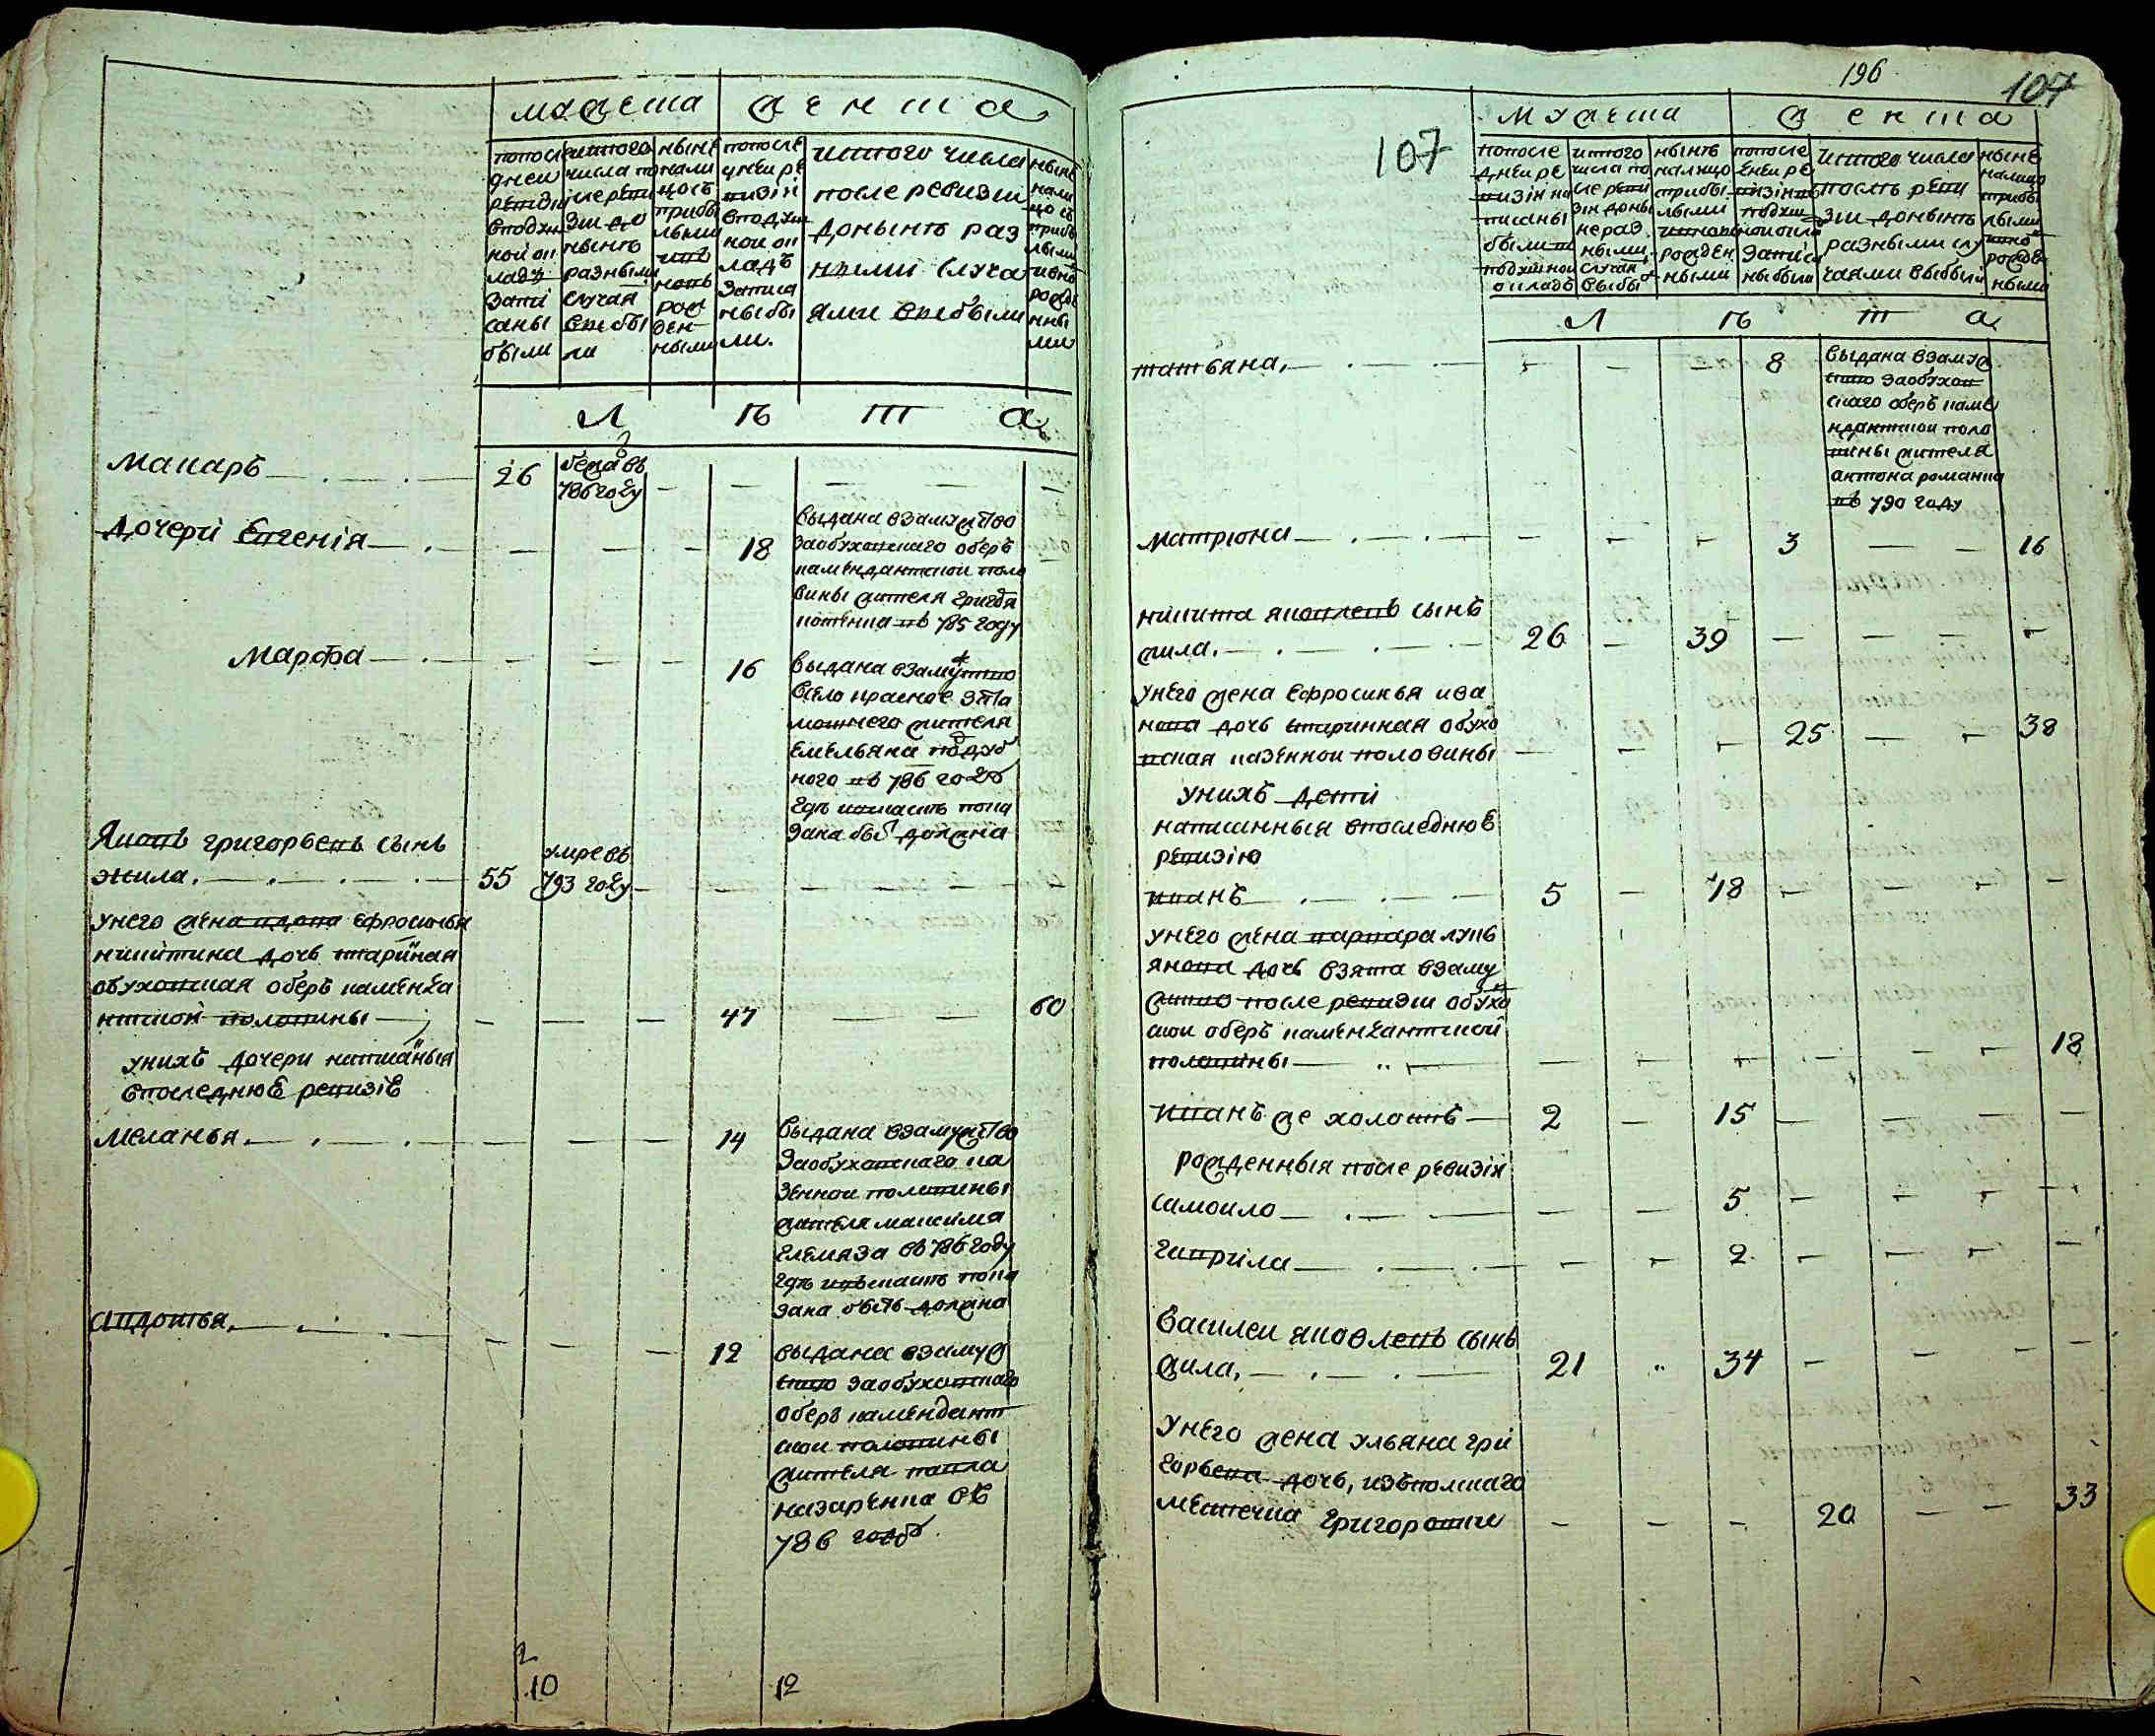 мужеска
женска
попосле
дней
ревизіи
вподуш
ной ок
ладъ
запи
саны
были
исттого
числа по
слереви
зіи до
нынѣ
разными
случая
ми выбы
ли
нынѣ
нали
цосъ
прибы
лыми
ино
вовь
рож
ден
ными
попосле
дней ре
визіи
вподуш
ной ок
ладъ
записа
ны бы
ли.
истого числа
после ревизіи
донынѣ раз
ными случа
ями выбыли
нынѣ
нали
цо съ
прибы
лыми
ивно
рожде
нны
ми
Л ѣ т а
Макаръ
26
бежа въ
786 году
дочери Евгенія
18
выдана взамужство
заобуховскаго оберъ
камендантской поло
вины жителя григоря
котенка въ 785 году
Марфа
16
выдана взамужтво
всело красное зата
мошнего жителя
Емельяна поддуб
ного въ 786 годѣ
гдѣ ивскаскѣ пока
зана быть должна
Яковъ григорьевъ сынъ
жила.
55
умре въ
793 году
унего жена вдова ефросинья
никитина дочь старинная
обуховская оберъ каменда
нтской половины
47
60
унихъ дочери написаныя
впоследнюю ревизіе
меланья.
14
выдана взамужство
заобуховскаго ка
зенной половины
жителя максима
глемяза въ 786 году
гдѣ ивъскаскѣ пока
зана быть должна
авдотья.
12
выдана взамуж
ство заобуховскаго
оберъ камендант
ской половины
жителя павла
назаренка въ
786 годѣ.
10
12
196
107
107
мужеска
женска
попосле
дней ре
визіи на
писаны
были в
подушной
окладѣ
истого
числа по
сле реви
зіи доны
не раз
ными
случая
выбы
нынѣ
налицо
прибы
лыми
иновь
рожден
ными
попосле
дней ре
визіи въ
подуш
ной окла
записа
ны были
истого числа
послѣ реви
зіи донынѣ
разными слу
чаями выбыли
нынѣ
налицо
прибы
лыми
ино
рожде
ными
Л ѣ т а
татьяна.
8
выдана взамуж
ство заобухов
скаго оберъ каме
ндантской поло
вины жителя
антона романка
въ 790 году
матріона
3
16
никита яковлевъ сынъ
жила.
26
39
унего жена ефросинья ива
нова дочь старинная обухо
вская казенной половины
25
38
унихъ дети
написанныя впоследнюю
ревизію
иванъ
5
18
унего жена варвара лукь
янова дочь взята взаму
жство после ревизіи обухо
вской оберъ камендантской
половины
18
иванъ же холостъ
2
15
рожденныя после ревизіи
самоило
5
гаврила
2
василеи яковлевъ сынъ
жила.
21
34
унего жена ульяна гри
горьева дочь, изъполскаго
местечка григоровки
20
33